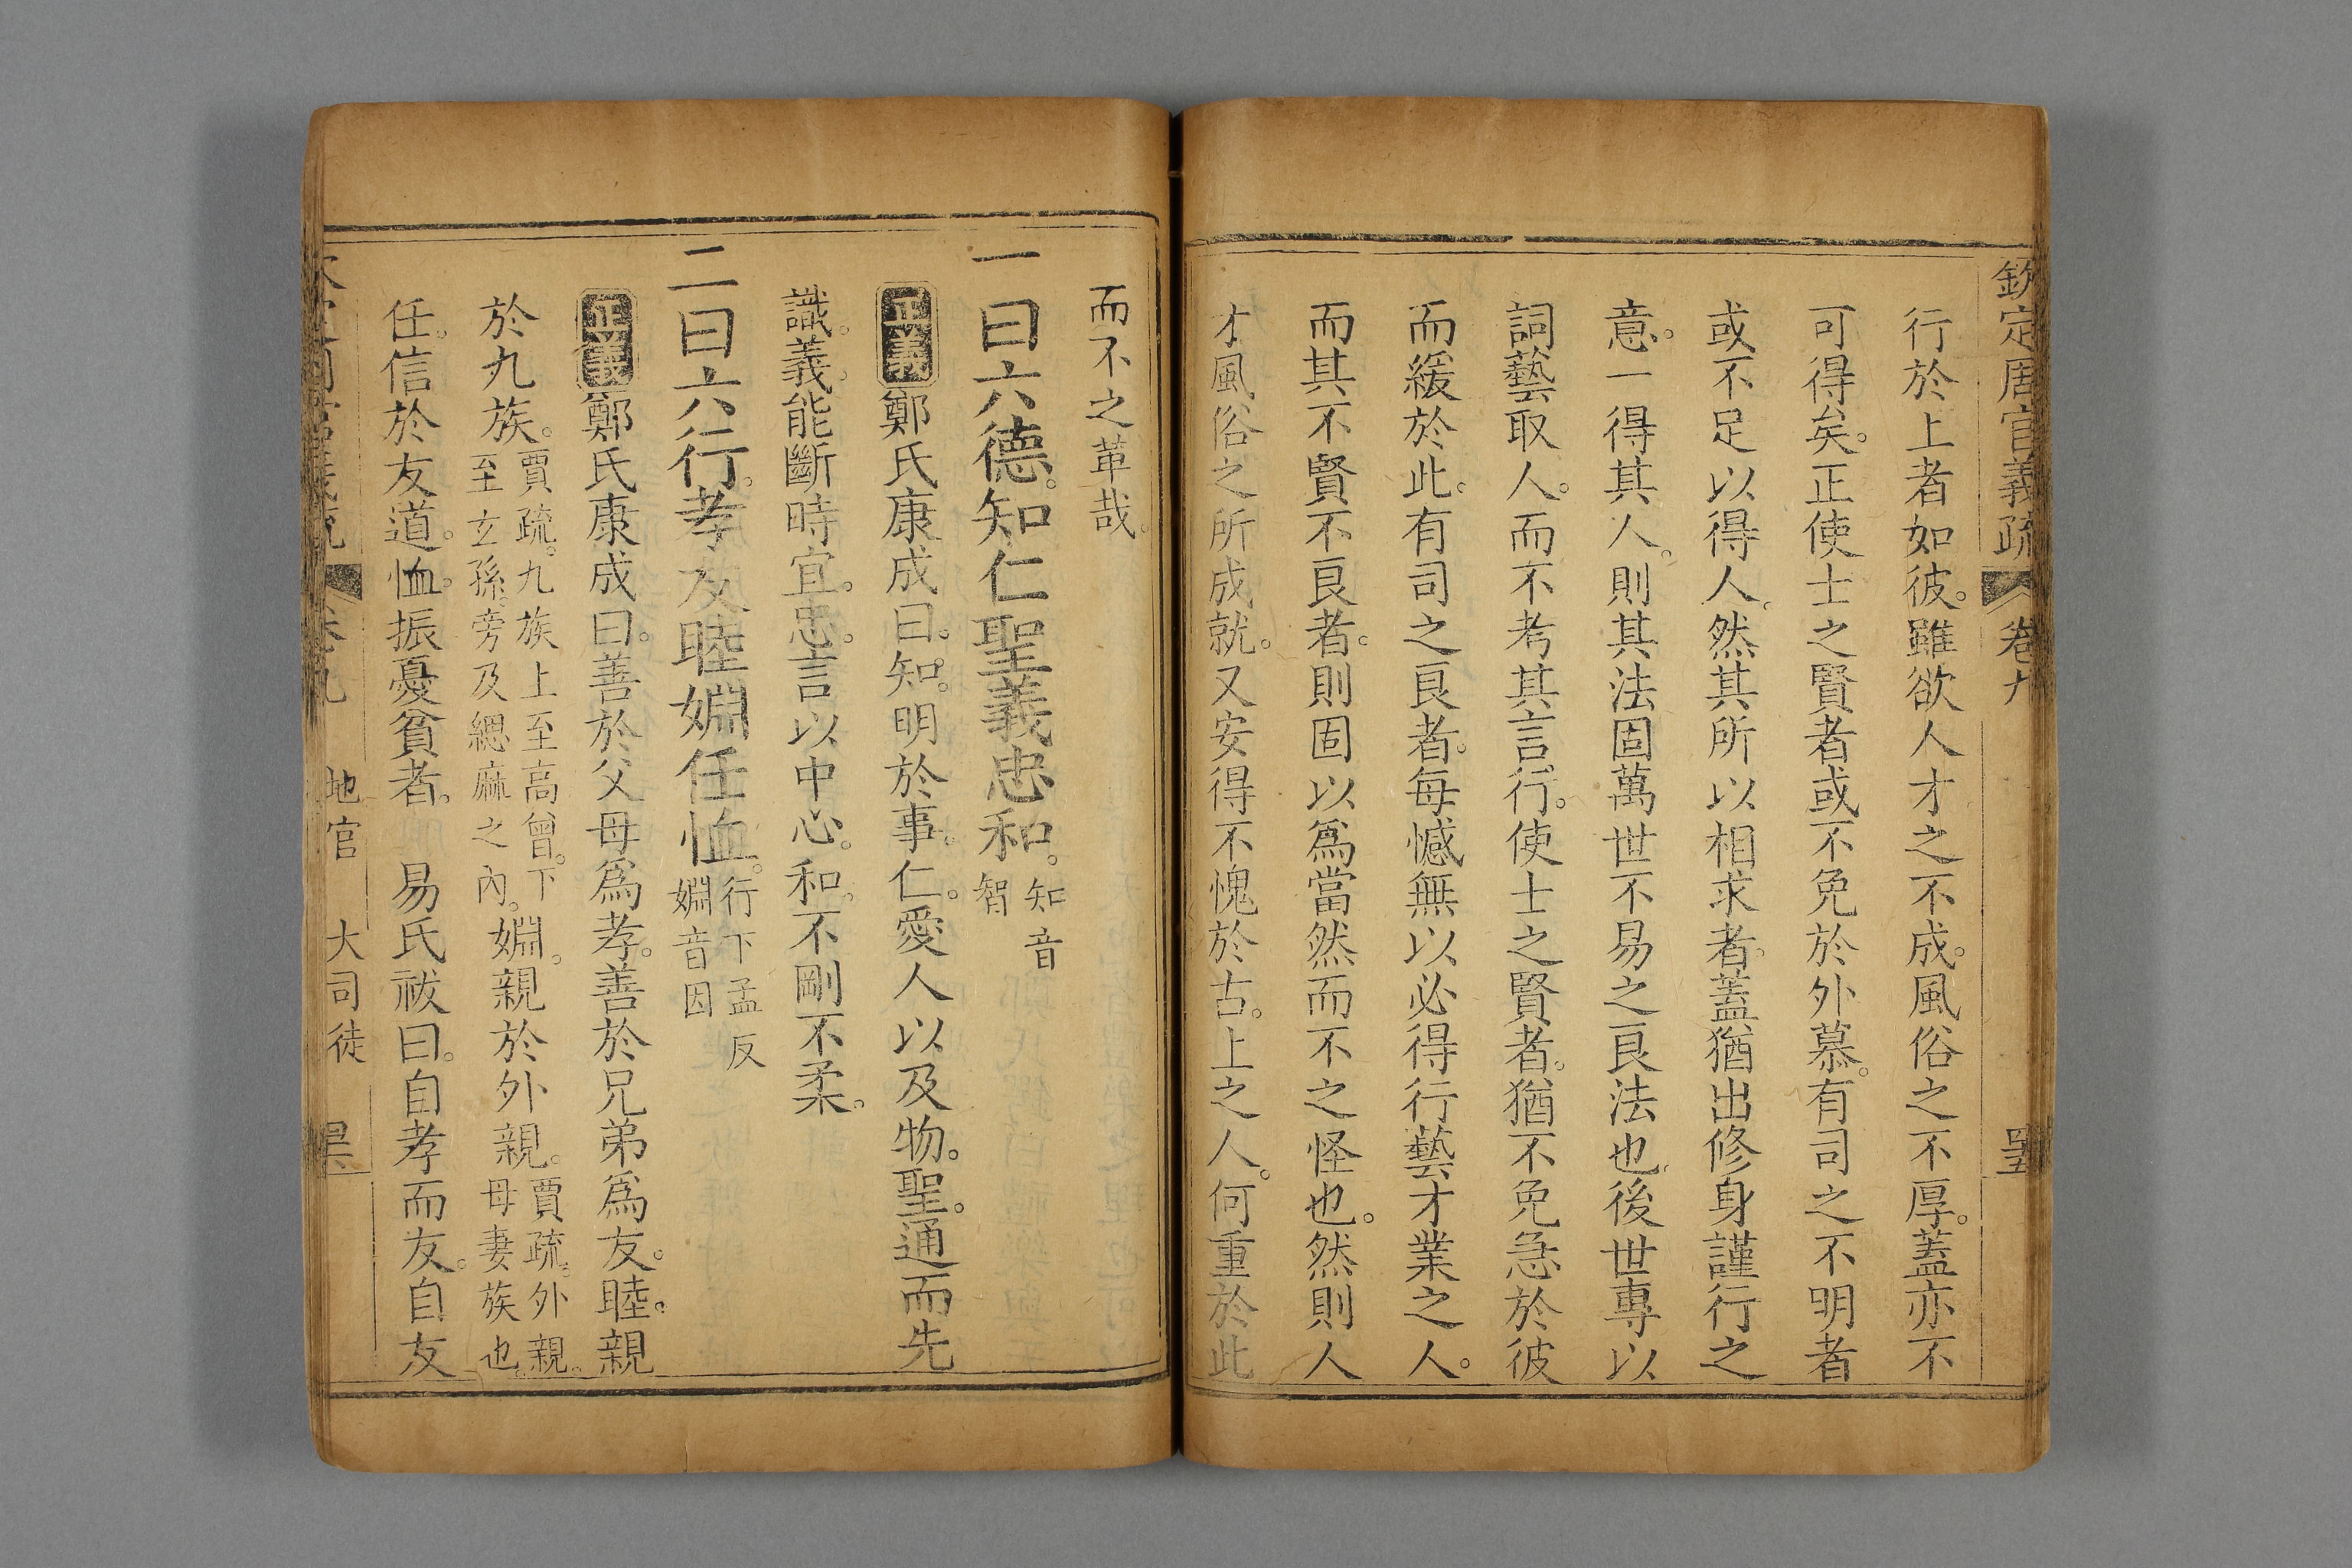 欽定周官義疏 卷九
行於上者如彼。雖欲人才之不成。風俗之不厚。蓋亦不
可得矣。正使士之賢者或不免於外慕。有司之不明者
或不足以得人。然其所以相求者。蓋猶出修身謹行之
意。一得其人。則其法固萬世不易之良法也。後世專以
詞藝取人。而不考其言行。使士之賢者。猶不免急於彼
而緩於此。有司之良者。每憾無以必得行藝才業之人。
而其不賢不良者。則固以爲當然而不之怪也。然則人
才風俗之所成就。又安得不愧於古。上之人。何重於此
而不之革哉。
一曰六德。知仁聖義忠和。知音智
正義鄭氏康成曰。知。明於事。仁。愛人以及物。聖。通而先
識。義。能斷時宜。忠。言以中心。和。不剛不柔。
二曰六行。孝友睦婣任恤。行下孟反婣音因
正義鄭氏康成曰。善於父母爲孝。善於兄弟爲友。睦。親
於九族。賈疏。九族上至高曾。下至玄孫。旁及緦麻之內。婣。親於外親。賈疏。外親。母妻族也。
任。信於友道。恤。振憂貧者。 易氏祓曰。自孝而友。自友
卷九 地官 大司徒